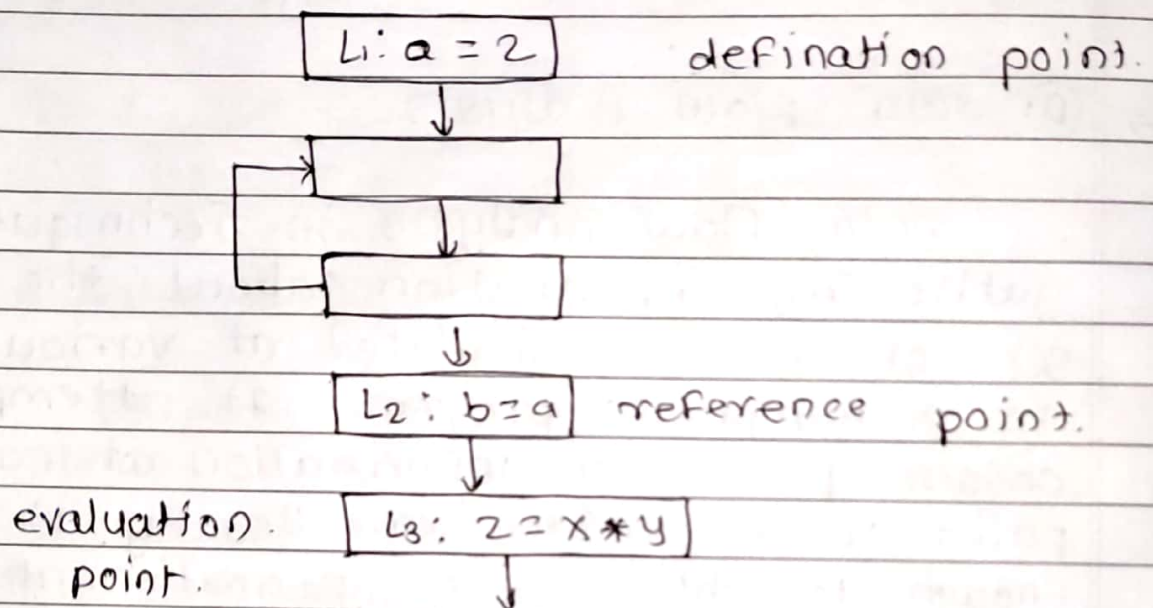 L1: a = 2 defination point.
L2: b=a reference point.
evaluation. L3: z = x * y
point.